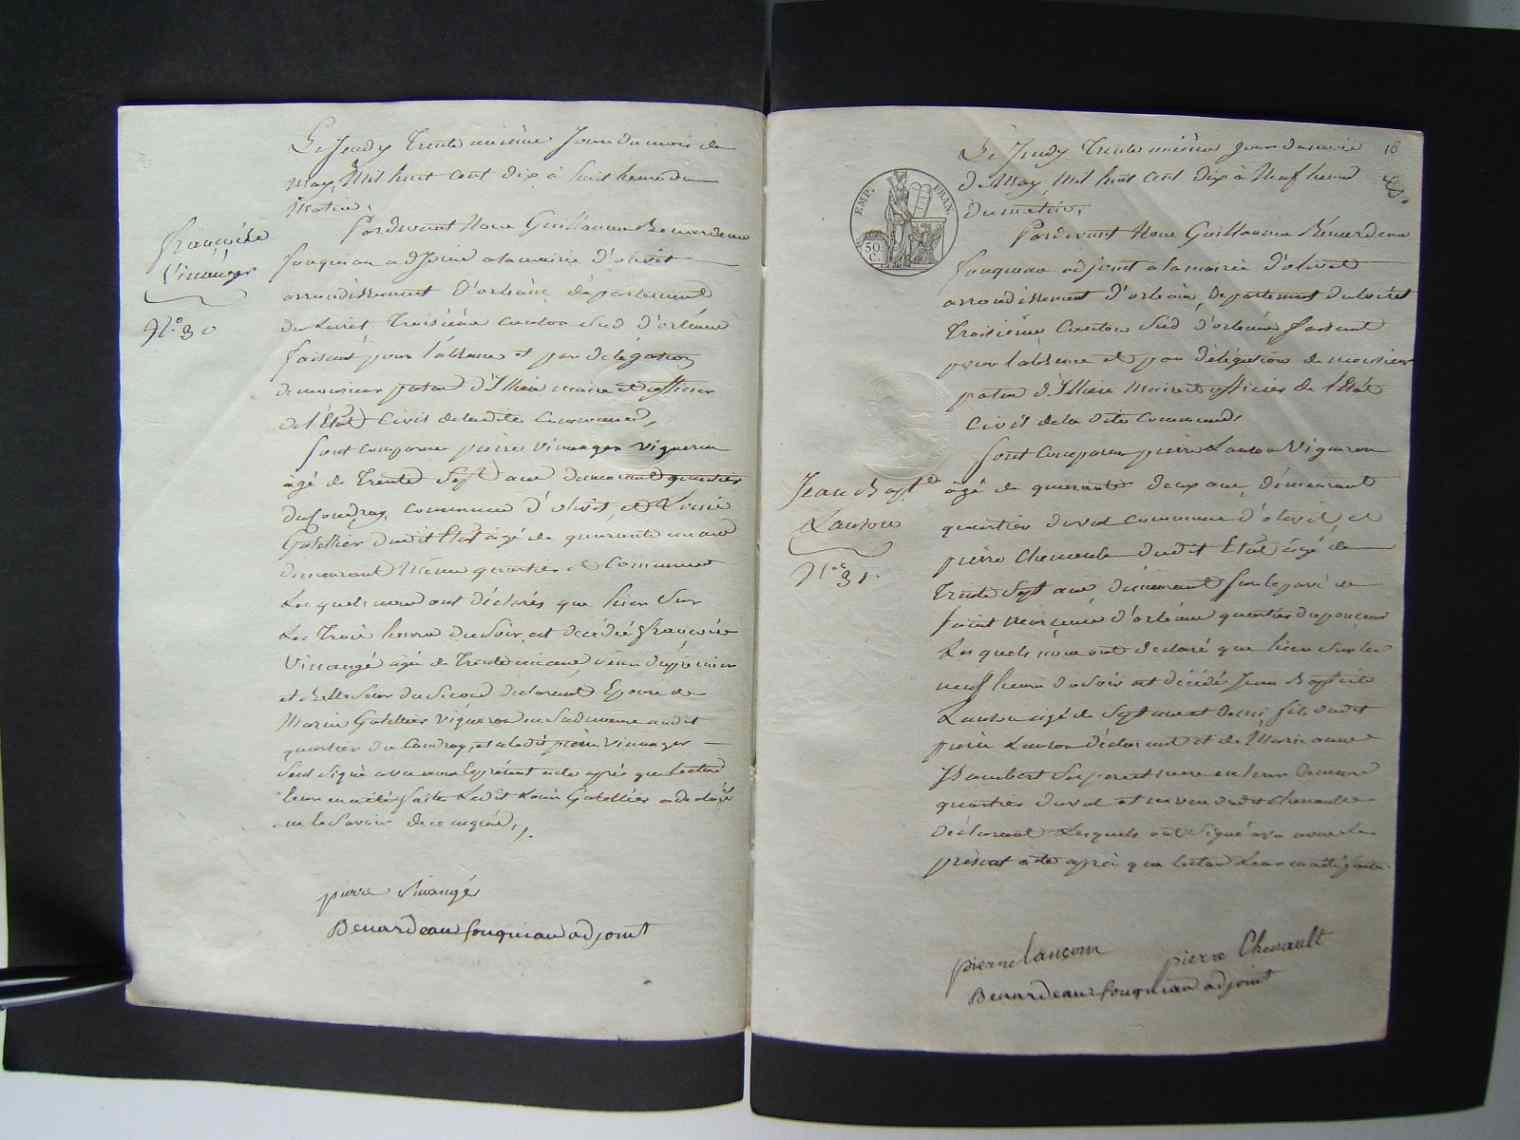 Le Jeudy Trente unième Jour du mois de
may, Mil huit cent dix à huit heures du
matin,
Pardevant Nous Guillaume Benardeau
fouqueau adjoint a la mairie d'olivet
arrondissement D'orléans, département
du Loiret Troisième canton Sud d'orléans
faisant pour l'absence et par délégation
de monsieur patas d'Illiers maire et officier
de l'Etat Civil de la dite commune,
Sont comparus pierre vinauger vigneron
âgé de Trente Sept ans demeurant quartier
du Coudray, commune d'olivet, et Louis
Gatellier dudit Etat âgé de quarante un ans
demeurant même quartier et commune
Lesquels nous ont déclarés que hier Sur
Les Trois heures du Soir, est décédée françoise
Vinaugé agée de Trente un ans, Sœur du premier
et Belle Sœur du Second déclarant Epouse de
Marin Gatellier Vigneron en Sa demeure audit
quartier du Coudray, et a ledit pierre Vinauger
Seul Signé avec nous Le présent acte après que Lecture
Leur en a été faite Ledit Louis Gatellier a déclaré
ne le Savoir de ce enquis,
pierre vinaugé
Benardeau fouqueau adjoint
françoise
Vinauger
N.º 30
16
EMP. FRAN.
50 C.
Le Jeudy Trente unième Jour du mois
de May, Mil huit Cent dix à Neuf heures
du matin,
Pardevant Nous Guillaume Bénardeau
fouqueau adjoint a la mairie d'olivet
arrondissement d'orléans, Département du Loiret
Troisième Canton Sud d'orléans faisant
pour l'absence et par délégation de monsieur
patas d'Illiers Maire et officier de l'Etat
Civil de la dite Commune,
Sont Comparus pierre Lanson Vigneron
âgé de quarante deux ans, demeurant
quartier du val commune d'olivet, et
pierre Chenault dudit Etat âgé de
Trente Sept ans demeurant Sur le pavé de
Saint d'orléans quartier
Lesquels nous ont declaré que hier Sur les
neuf heures du Soir est décédé Jean Baptiste
Lanson agé de Sept ans et Demi fils dudit
pierre Lanson déclarant et de Marie anne
Ses père et mère en leur Demeure
quartier du val et neveu dudit Chenault
Déclarant Lesquels ont Signé avec nous Le
présent acte après que Lecture Leur en a été faite
Jean Bapt.te
Lanson
N.º 31.
pierre lançon
pierre Chenault
Benardeau fouqueau adjoint